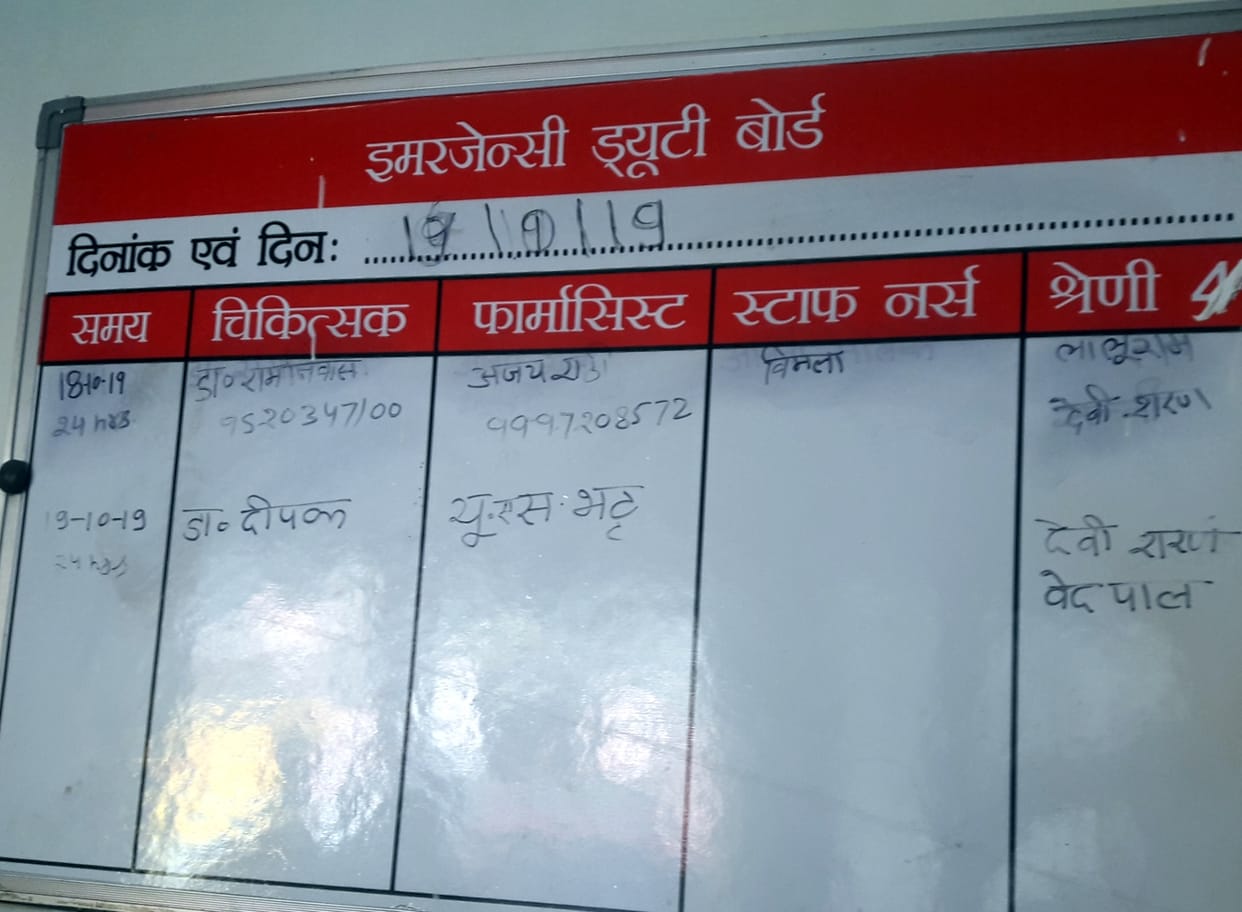 इमरजेन्सी ड्यूटी बोर्ड
दिनांक एवं दिन: 19/10/19
समय चिकित्सक फार्मासिस्ट स्टाफ नर्स श्रेणी 4
18-10-19 डा० रामनिवास अजय विमला लालूराम
24 hrs 9520347100 9997208572 देवी शरण
19-10-19 डा० दीपक यू.एस. भट्ट देवी शरण
24 hrs वेदपाल